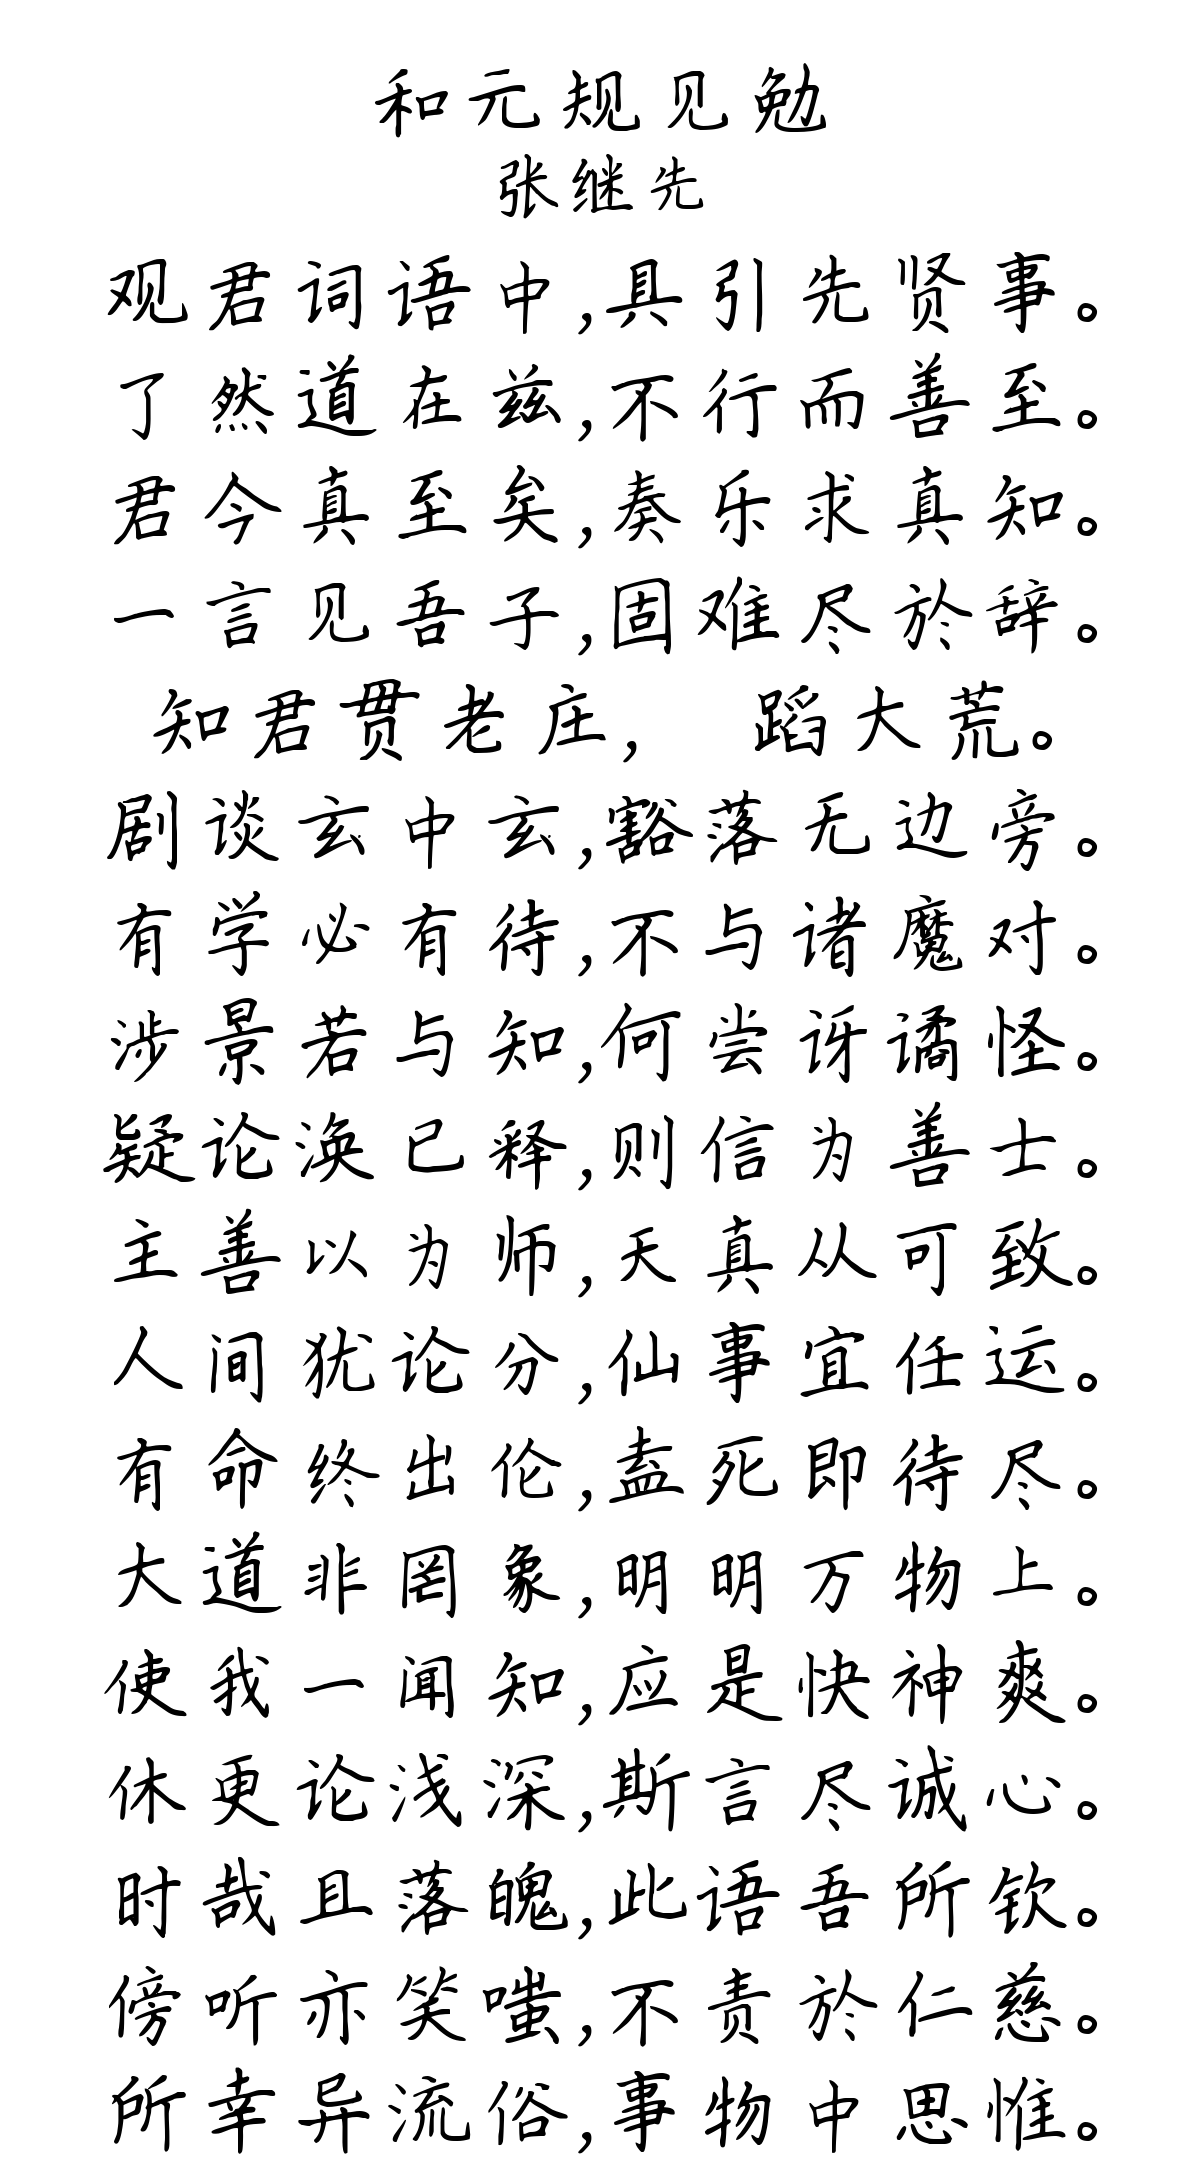 和元规见勉
张继先
观君词语中,具引先贤事。
了然道在兹,不行而善至。
君今真至矣,奏乐求真知。
一言见吾子,固难尽於辞。
知君贯老庄, 蹈大荒。
剧谈玄中玄,豁落无边旁。
有学必有待,不与诸魔对。
涉景若与知,何尝讶谲怪。
疑论涣已释,则信为善士。
主善以为师,天真从可致。
人间犹论分,仙事宜任运。
有命终出伦,盍死即待尽。
大道非罔象,明明万物上。
使我一闻知,应是快神爽。
休更论浅深,斯言尽诚心。
时哉且落魄,此语吾所钦。
傍听亦笑嗤,不责於仁慈。
所幸异流俗,事物中思惟。